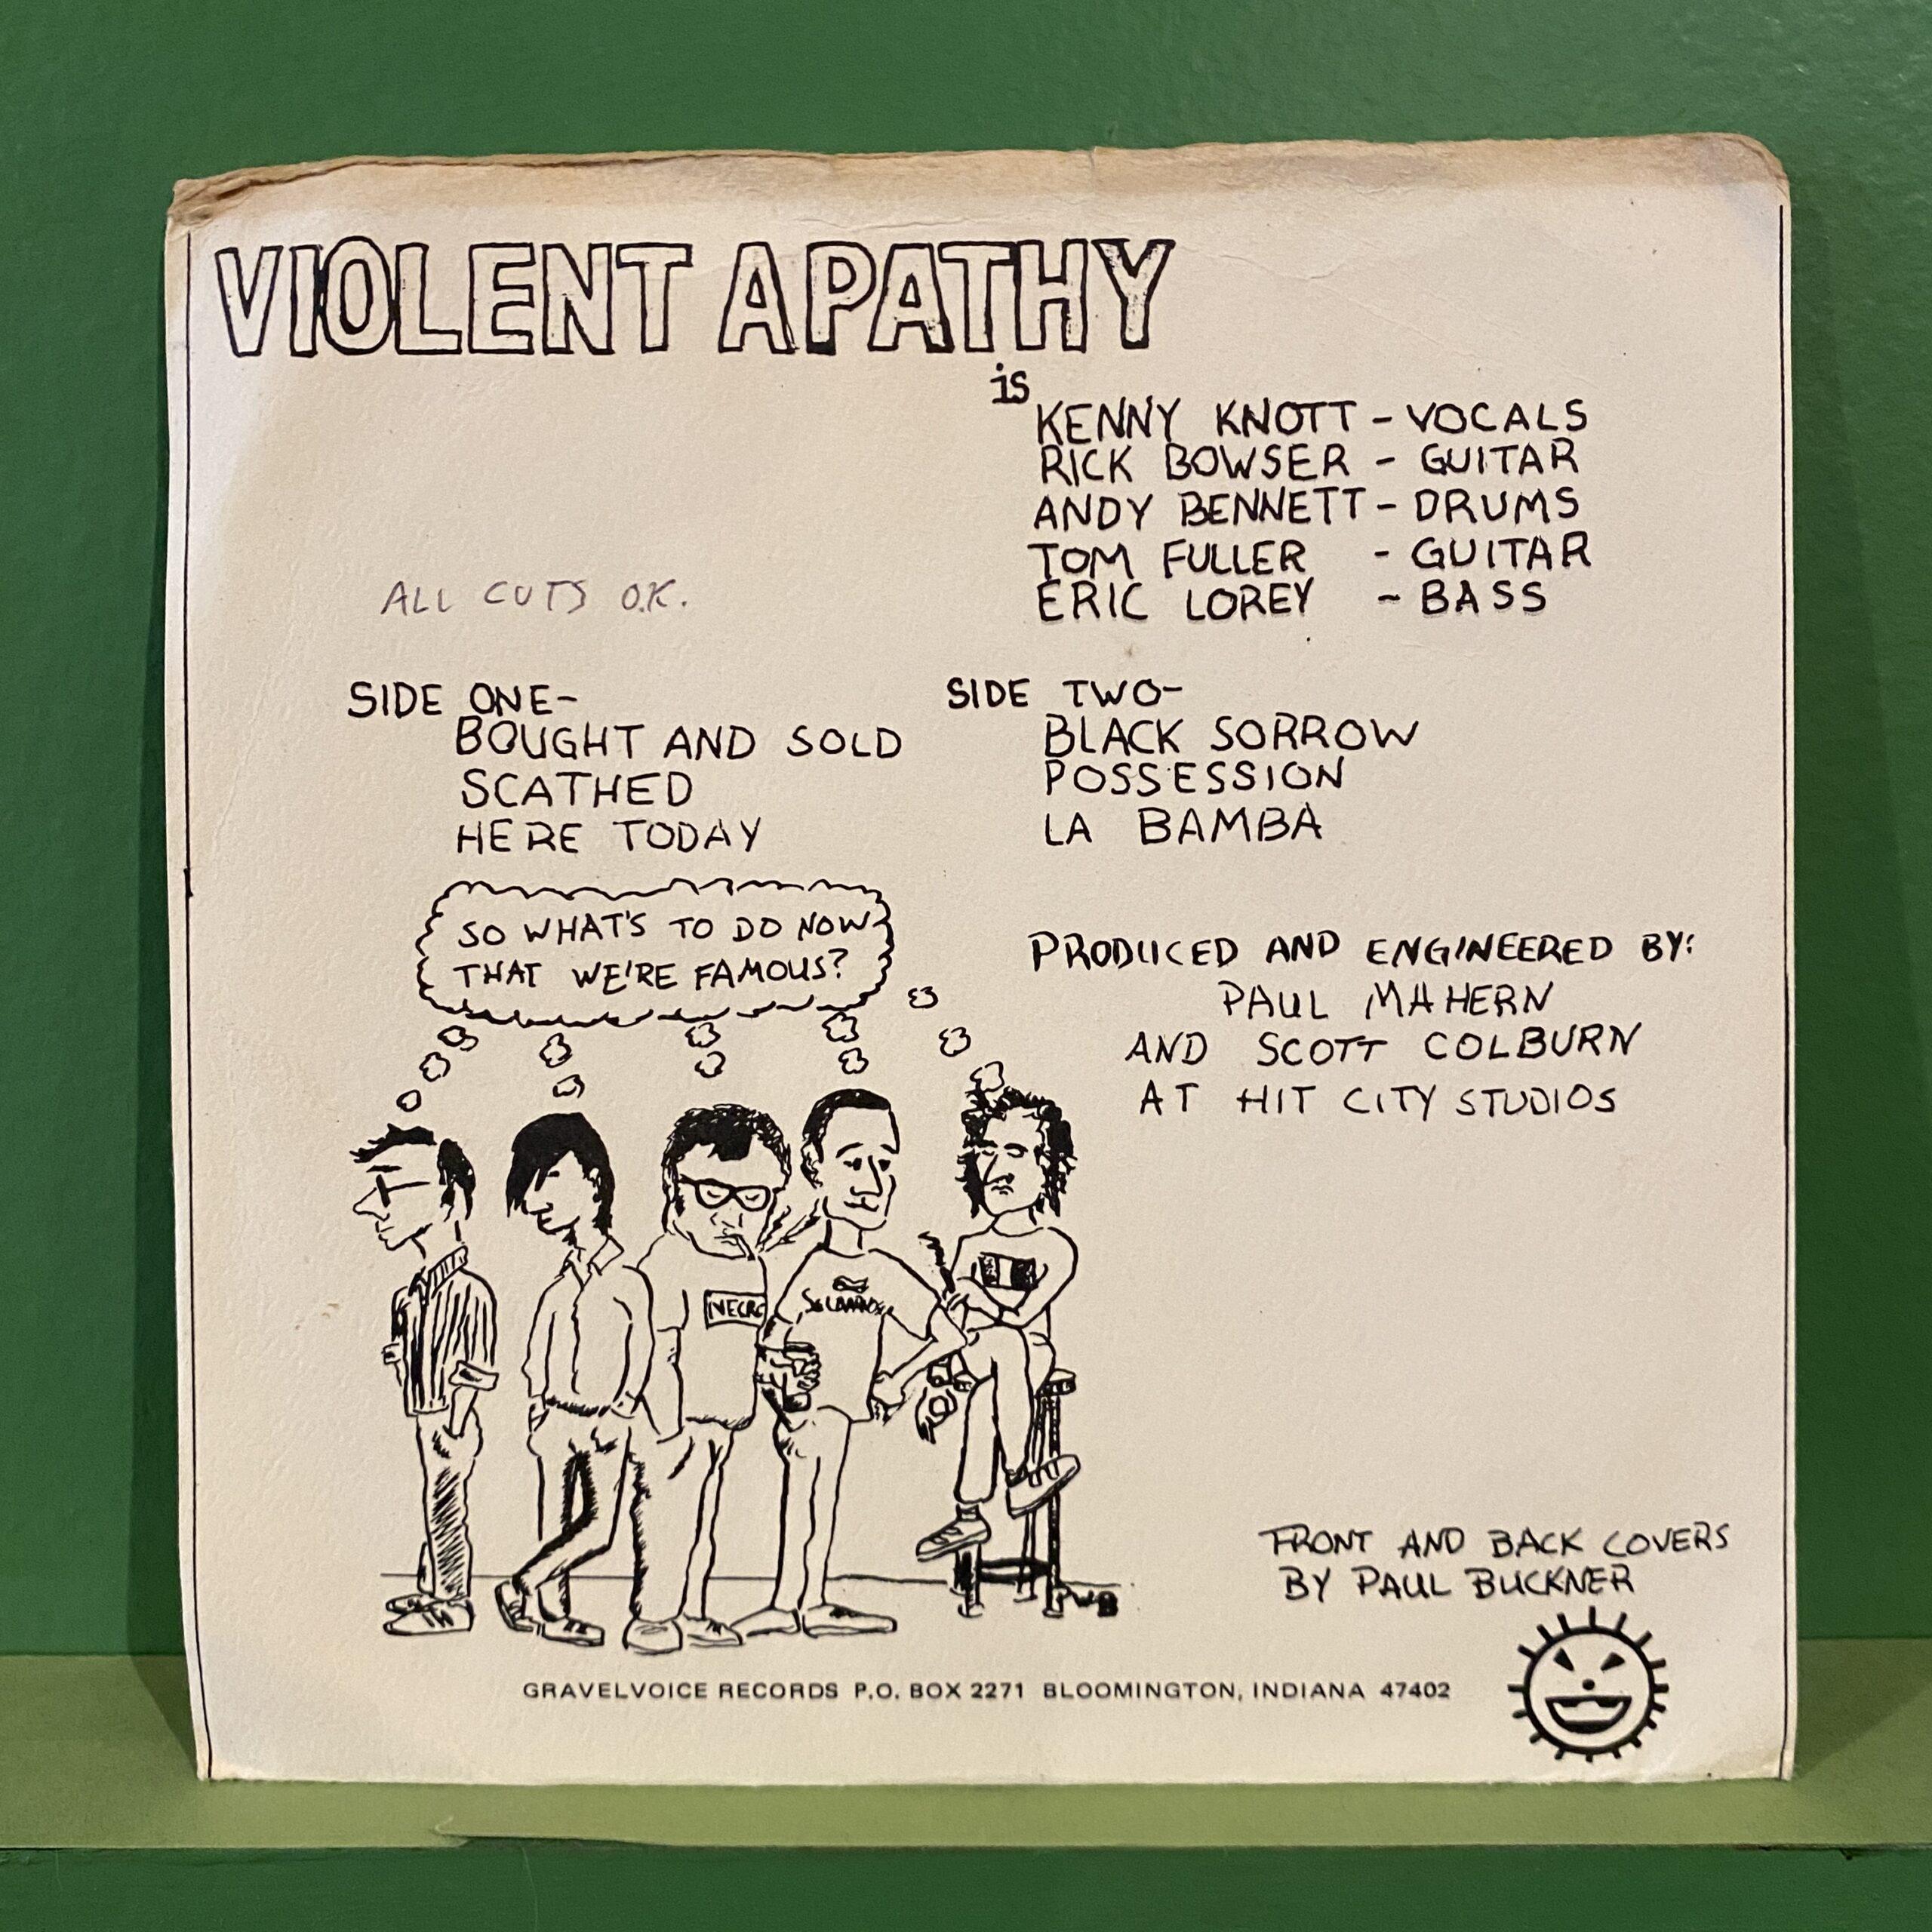 VIOLENT APATHY
is
KENNY KNOTT - VOCALS
RICK BOWSER - GUITAR
ANDY BENNETT - DRUMS
TOM FULLER - GUITAR
ERIC LOREY - BASS
ALL CUTS O.K.
SIDE ONE-
BOUGHT AND SOLD
SCATHED
HERE TODAY
SIDE TWO-
BLACK SORROW
POSSESSION
LA BAMBA
SO WHAT'S TO DO NOW
THAT WE'RE FAMOUS?
PRODUCED AND ENGINEERED BY:
PAUL MAHERN
AND SCOTT COLBURN
AT HIT CITY STUDIOS
NECRO
PWB
FRONT AND BACK COVERS
BY PAUL BUCKNER
GRAVELVOICE RECORDS P.O. BOX 2271 BLOOMINGTON, INDIANA 47402